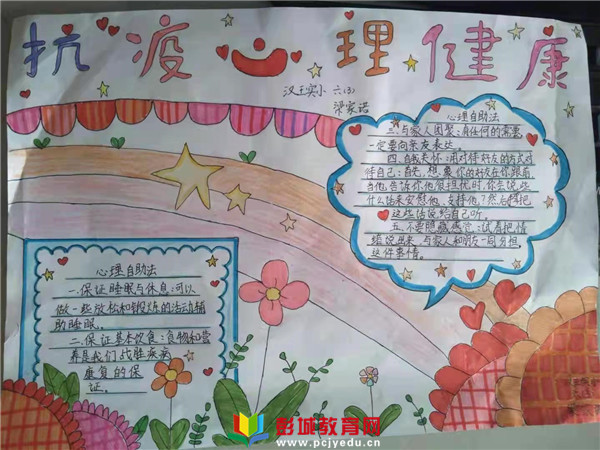 抗疫心理健康
汉王实小 六(3)
梁家诺
心理自助法
三.与家人团聚:有任何的需要
一定要向亲友表达。
四.自我关怀:用对待好友的方式对
待自己:首先,想象你的好友在你跟前
当他告诉你他很担忧时,你会说些
什么话来安慰他、支持他?然后,再把
这些话说给自己听。
五.不要隐藏感觉:试着把情
绪说出来,与家人和朋友一同分担
这件事情。
心理自助法
一.保证睡眠与休息:可以
做一些放松和锻炼的活动辅
助睡眠。
二.保证基本饮食:食物和营
养是我们战胜疾病
康复的保
证。
彭城教育网
www.pcjyedu.cn